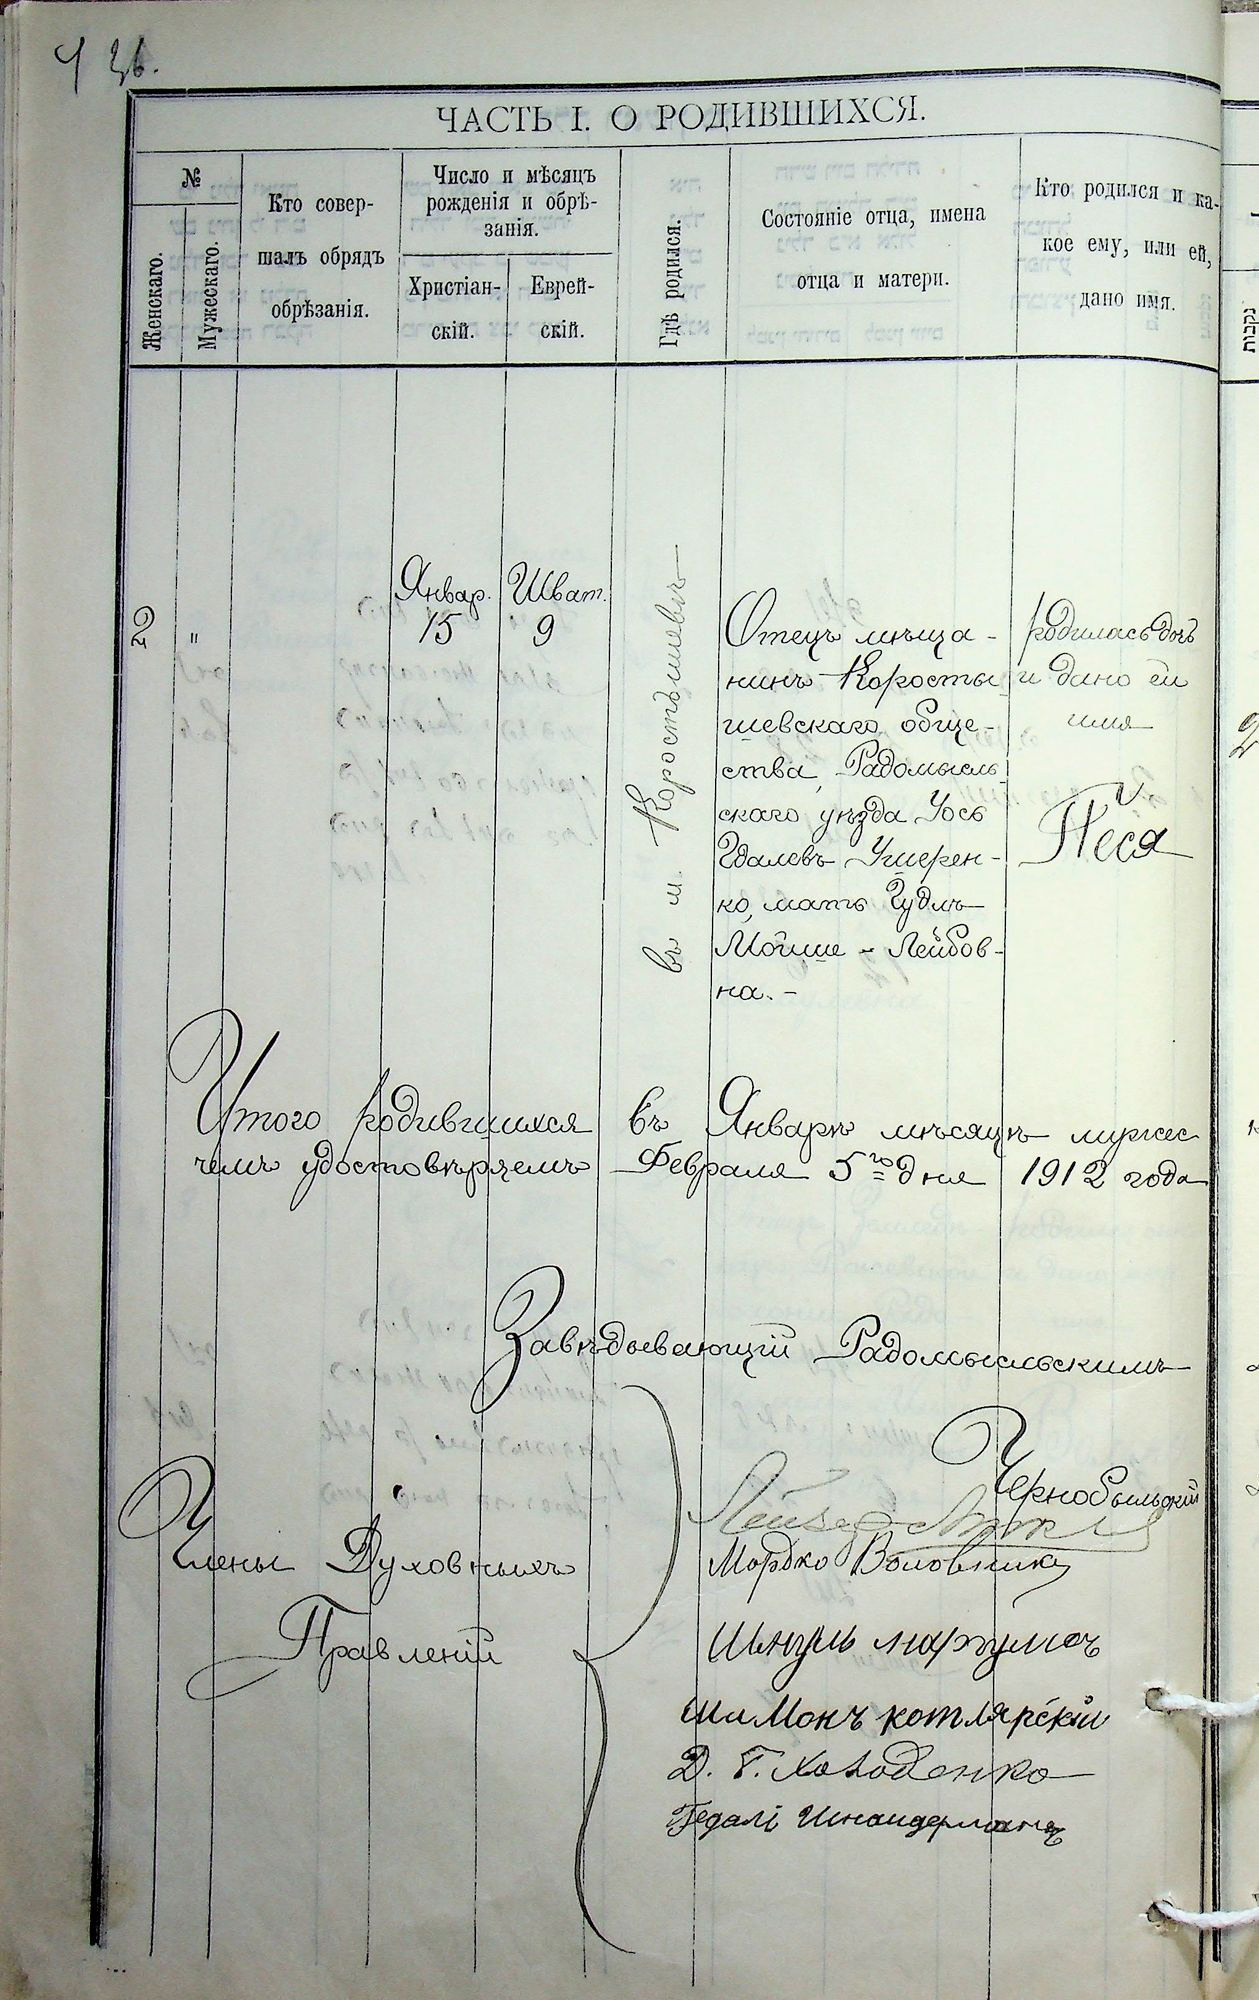 ЧАСТЬ I. О РОДИВШИХСЯ.
№
Женскаго.
Мужескаго.
Кто совер-
шалъ обрядъ
обрѣзанія.
Число и мѣсяцъ
рожденія и обрѣ-
занія.
Христіан-
скій.
Еврей-
скій.
Гдѣ родился.
Состояніе отца, имена
отца и матери.
Кто родился и ка-
кое ему, или ей,
дано имя.
נקבות
2
"
Январ.
15
Шват.
9
въ м. Коростышевъ
Отецъ мѣща-
нинъ Коросты
шевскаго обще-
ства, Радомысль
скаго уѣзда Іось
Гдалевъ Ушерен-
ко, мать Гудль
Мойше - Лейбов-
на. -
родилась дочь
и дано ей
имя
Неся
2
Итого родившихся въ Январѣ мѣсяцѣ мужес
чемъ удостовѣряемъ Февраля 5го дня 1912 года
Завѣдывающій Радомысльскимъ
Чернобыльскій
Члены Духовныхъ
Правленій
Мордко Воловникъ
Шимонъ Котлярскій
Д. Г. Хододенко
Гедалі Шнайдерманъ